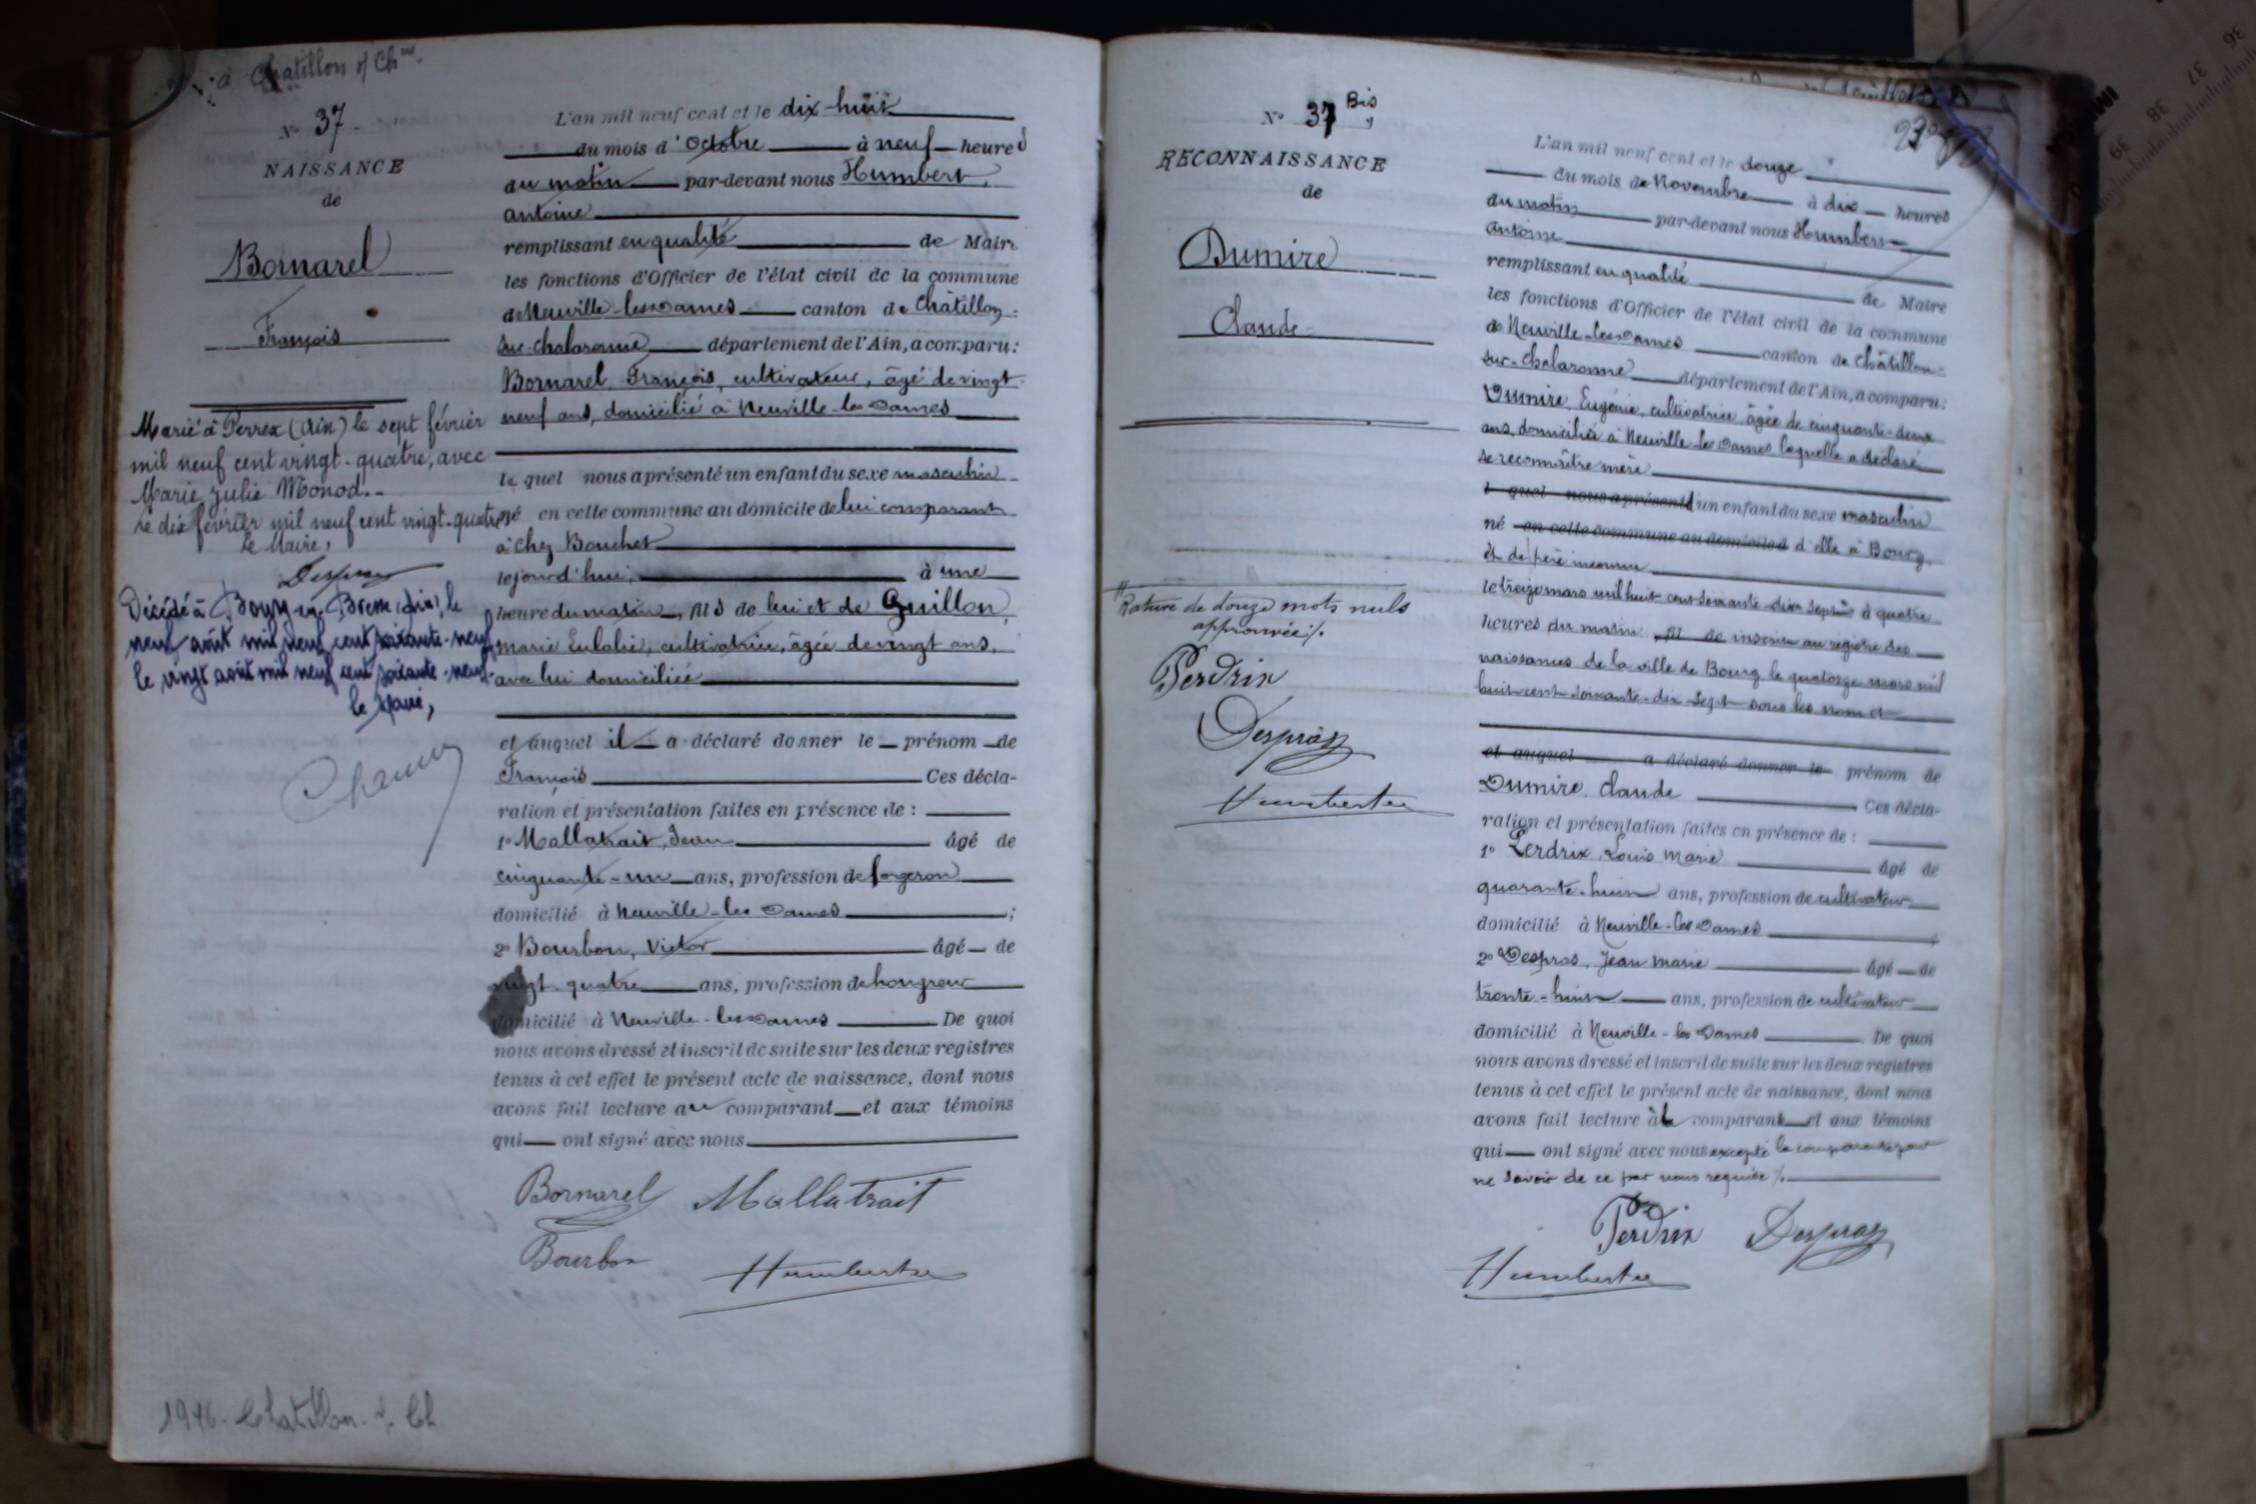 à Chatillon s/ Ch
N° 37
NAISSANCE
de
Bornarel
François
Marié à Perrex (Ain) le sept février
mil neuf cent vingt-quatre, avec
Marie Julie Monod.-
Le dix février mil neuf cent vingt-quatre
Le Maire,
Décédé à Bourg-en-Bresse (Ain), le
neuf août mil neuf cent soixante-neuf
le vingt août mil neuf cent soixante-neuf.
le Maire,
1946. Chatillon s/ Ch
L'an mil neuf cent et le dix-huit
du mois d'Octobre à neuf heures
du matin par-devant nous Humbert,
antoine
remplissant en qualité de Maire
les fonctions d'Officier de l'état civil de la commune
de Neuville-les-Dames canton de Châtillon-
sur-chalaronne département de l'Ain, a comparu:
Bornarel, François, cultivateur, âgé de vingt-
neuf ans, domicilié à Neuville-les-Dames
lequel nous a présenté un enfant du sexe masculin
né en cette commune au domicile de lui comparant
à chez Bouchet
le jourd'hui, à une
heure du matin, fils de lui et de Guillon,
marie Eulalie, cultivatrice, âgée de vingt ans,
avec lui domiciliée
et auquel il a déclaré donner le prénom de
François Ces décla-
ration et présentation faites en présence de :
1° Mallatrait, Jean âgé de
cinquante-un ans, profession de forgeron
domicilié à Neuville-les-Dames ;
2° Bourbon, Victor âgé de
vingt-quatre ans, profession de hongreur
domicilié à Neuville-les-Dames De quoi
nous avons dressé et inscrit de suite sur les deux registres
tenus à cet effet le présent acte de naissance, dont nous
avons fait lecture au comparant et aux témoins
qui ont signé avec nous
Bornarel Mallatrait
Bourbon Humbert
N° 37 Bis
RECONNAISSANCE
de
Dumire
Claude
Rature de douze mots nuls
approuvée /.
Perdrix
Despras
Humbert
L'an mil neuf cent et le douze
du mois de Novembre à dix heures
du matin par-devant nous Humbert
antoine
remplissant en qualité de Maire
les fonctions d'Officier de l'état civil de la commune
de Neuville-les-Dames canton de Châtillon-
sur-chalaronne département de l'Ain, a comparu:
Dumire, Eugénie, cultivatrice âgée de cinquante-deux
ans, domiciliée à Neuville-les-Dames laquelle a déclaré
se reconnaître mère
l quel nous a présenté un enfant du sexe masculin
né en cette commune au domicile d d'elle à Bourg,
et de père inconnu
le treize mars mil huit cent soixante-dix sept à quatre
heures du matin fil de inscrit au registre des
naissances de la ville de Bourg le quatorze mars mil
huit cent soixante-dix sept sous les nom et
et auquel a déclaré donner le prénom de
Dumire, Claude Ces décla-
ration et présentation faites en présence de :
1° Perdrix, Louis Marie âgé de
quarante-huit ans, profession de cultivateur
domicilié à Neuville-les-Dames ;
2° Despras, Jean marie âgé de
trente-huit ans, profession de cultivateur
domicilié à Neuville-les-Dames De quoi
nous avons dressé et inscrit de suite sur les deux registres
tenus à cet effet le présent acte de naissance, dont nous
avons fait lecture à la comparante et aux témoins
qui ont signé avec nous excepté la comparante pour
ne savoir de ce par nous requise /.
Perdrix Despras
Humbert
36
37
38
39